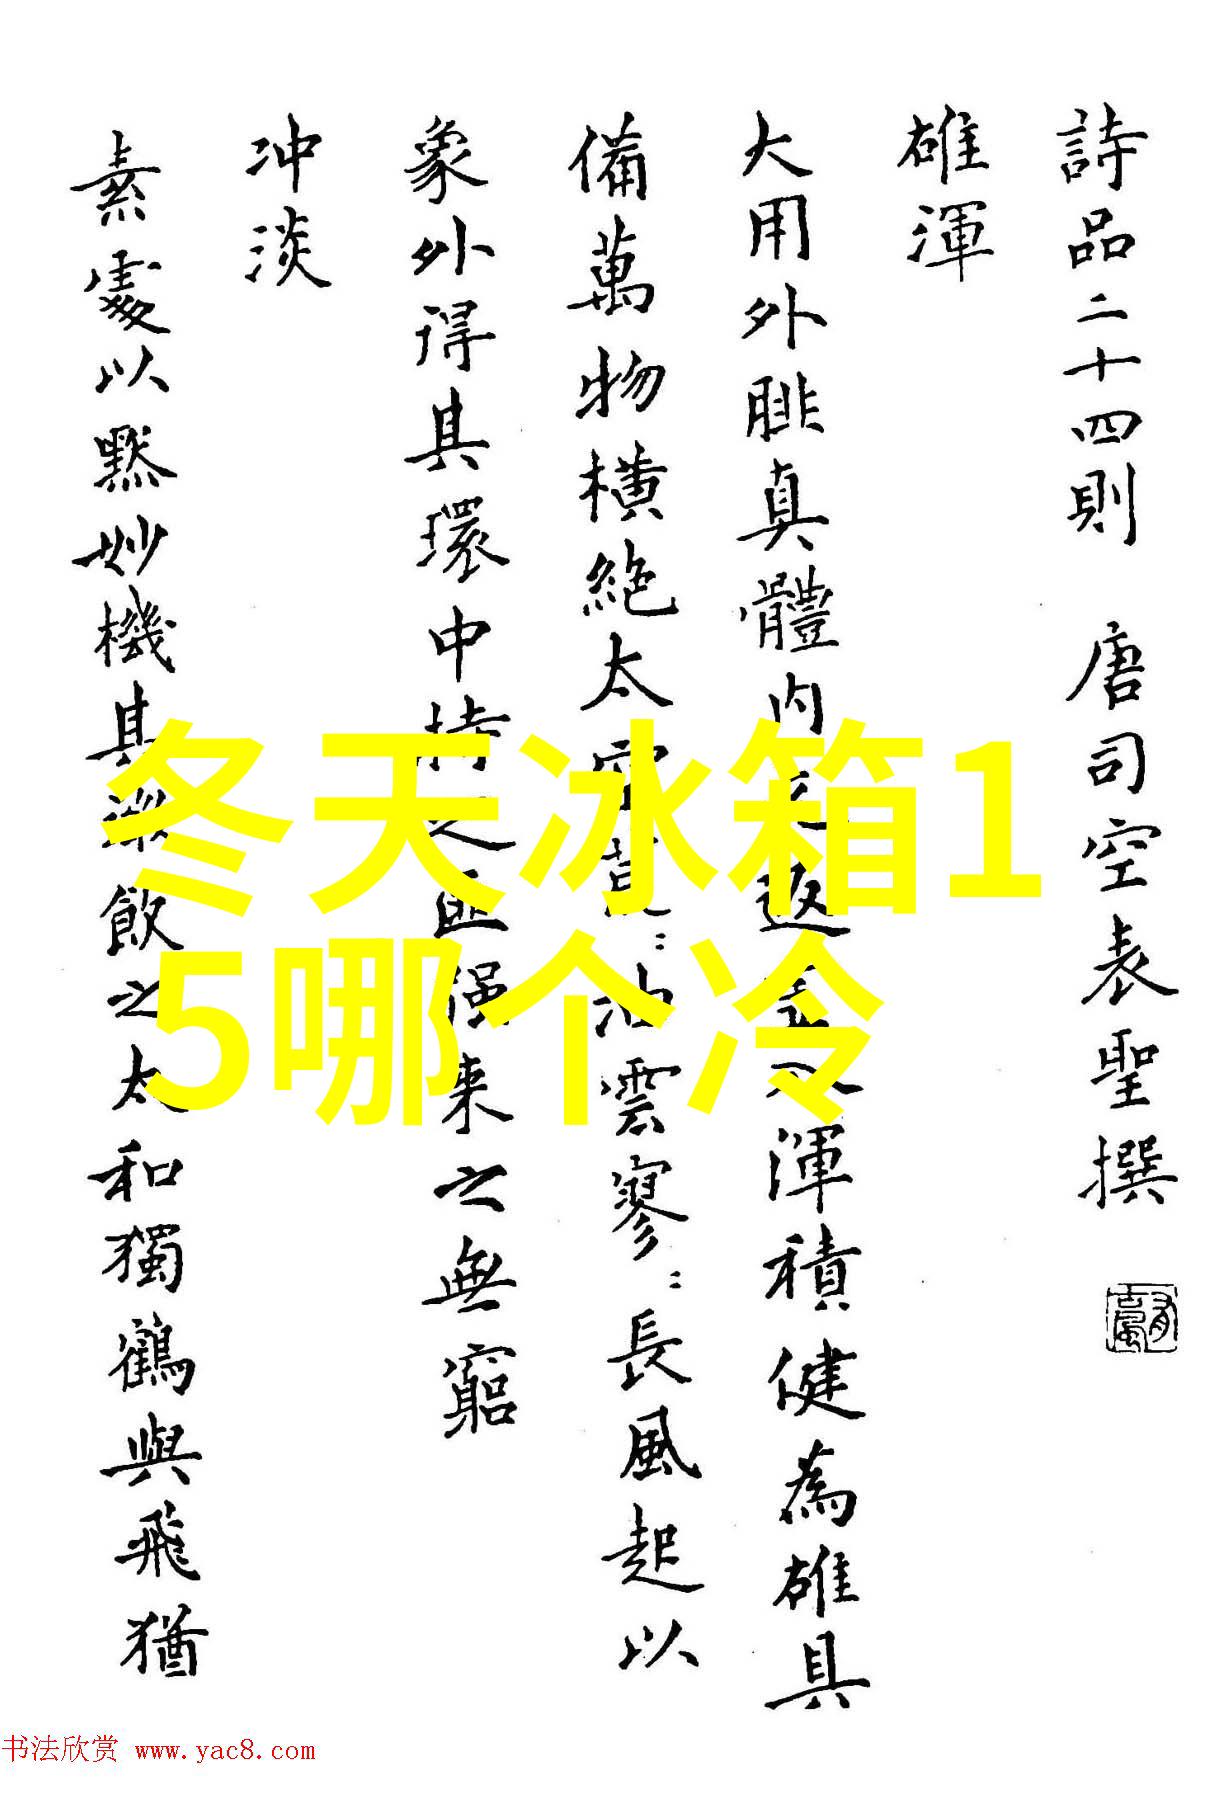 詩品二十四則 唐司空表聖撰
雄渾
大用外腓真體內之返虛入渾積健為雄具
備萬物橫絶太空荒:油雲寥:長風起以
象外得其環中持之匪强来之無窮
冲淡
素處以默妙機其微飲之太和獨鶴與飛猶
冬天冰箱1
5哪个冷
书法欣赏 www.yac8.com